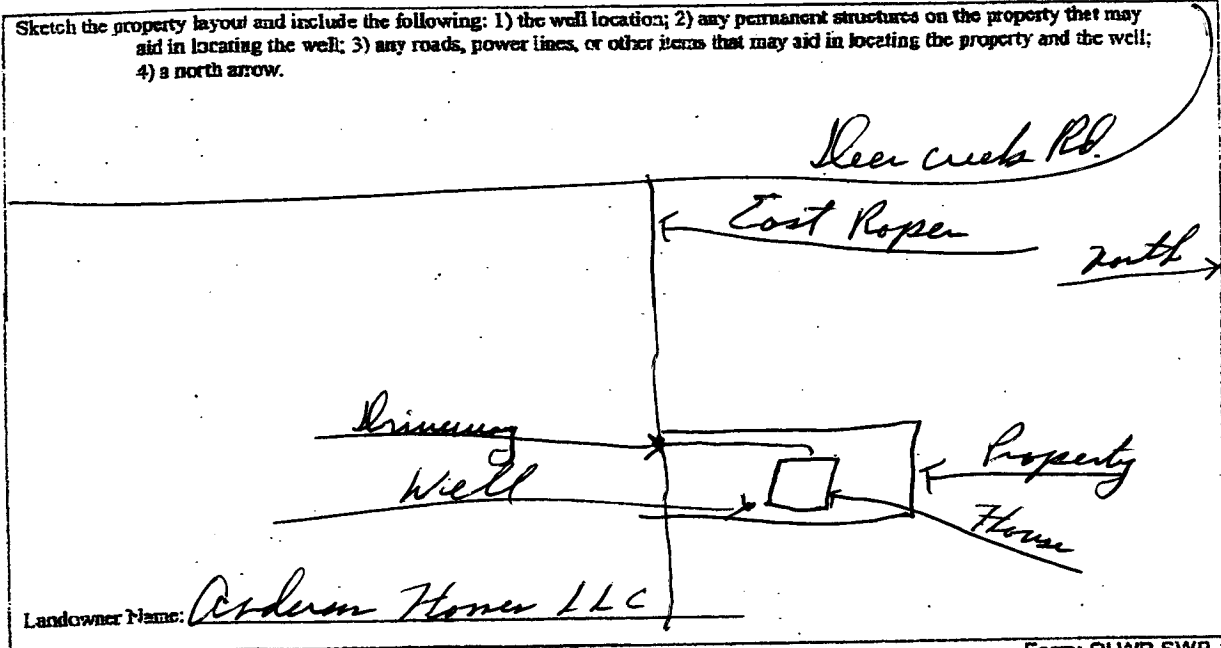 Sketch the property layout and include the following: 1) the well location; 2) any permanent structures on the property that may
aid in locating the well; 3) any roads, power lines, or other items that may aid in locating the property and the well;
4) a north arrow.
Deer creek Rd.
East Roper
north
Driveway
Property
Well
House
Landowner Name: Anderson Homes LLC